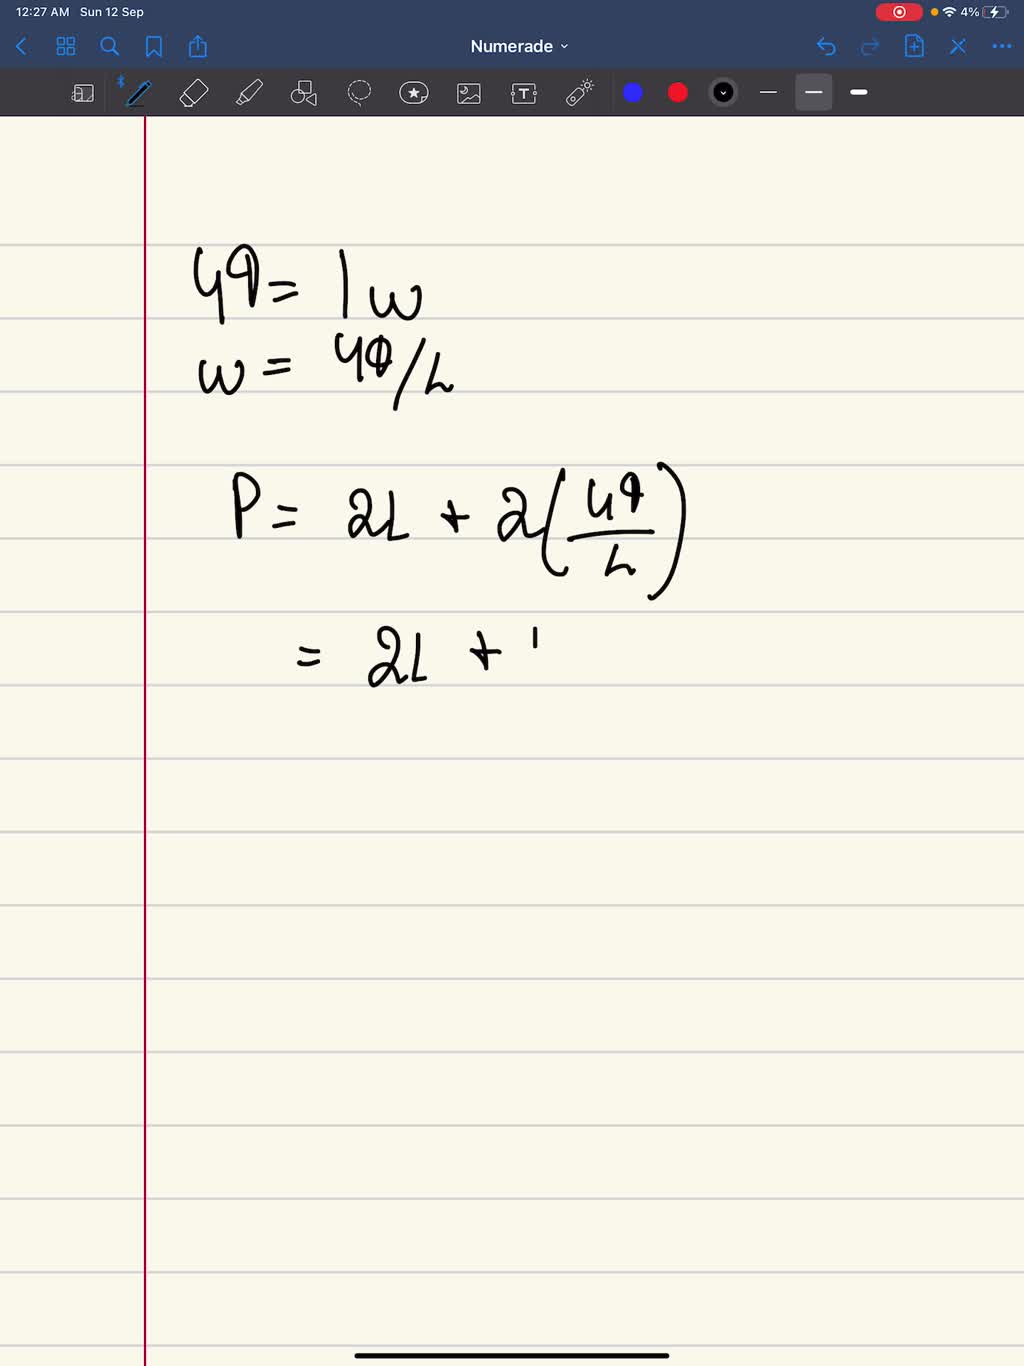 12:27 AM Sun 12 Sep 4%
Numerade
T
49 = lw
w = 49/L
P = 2L + 2(49/L)
= 2L +